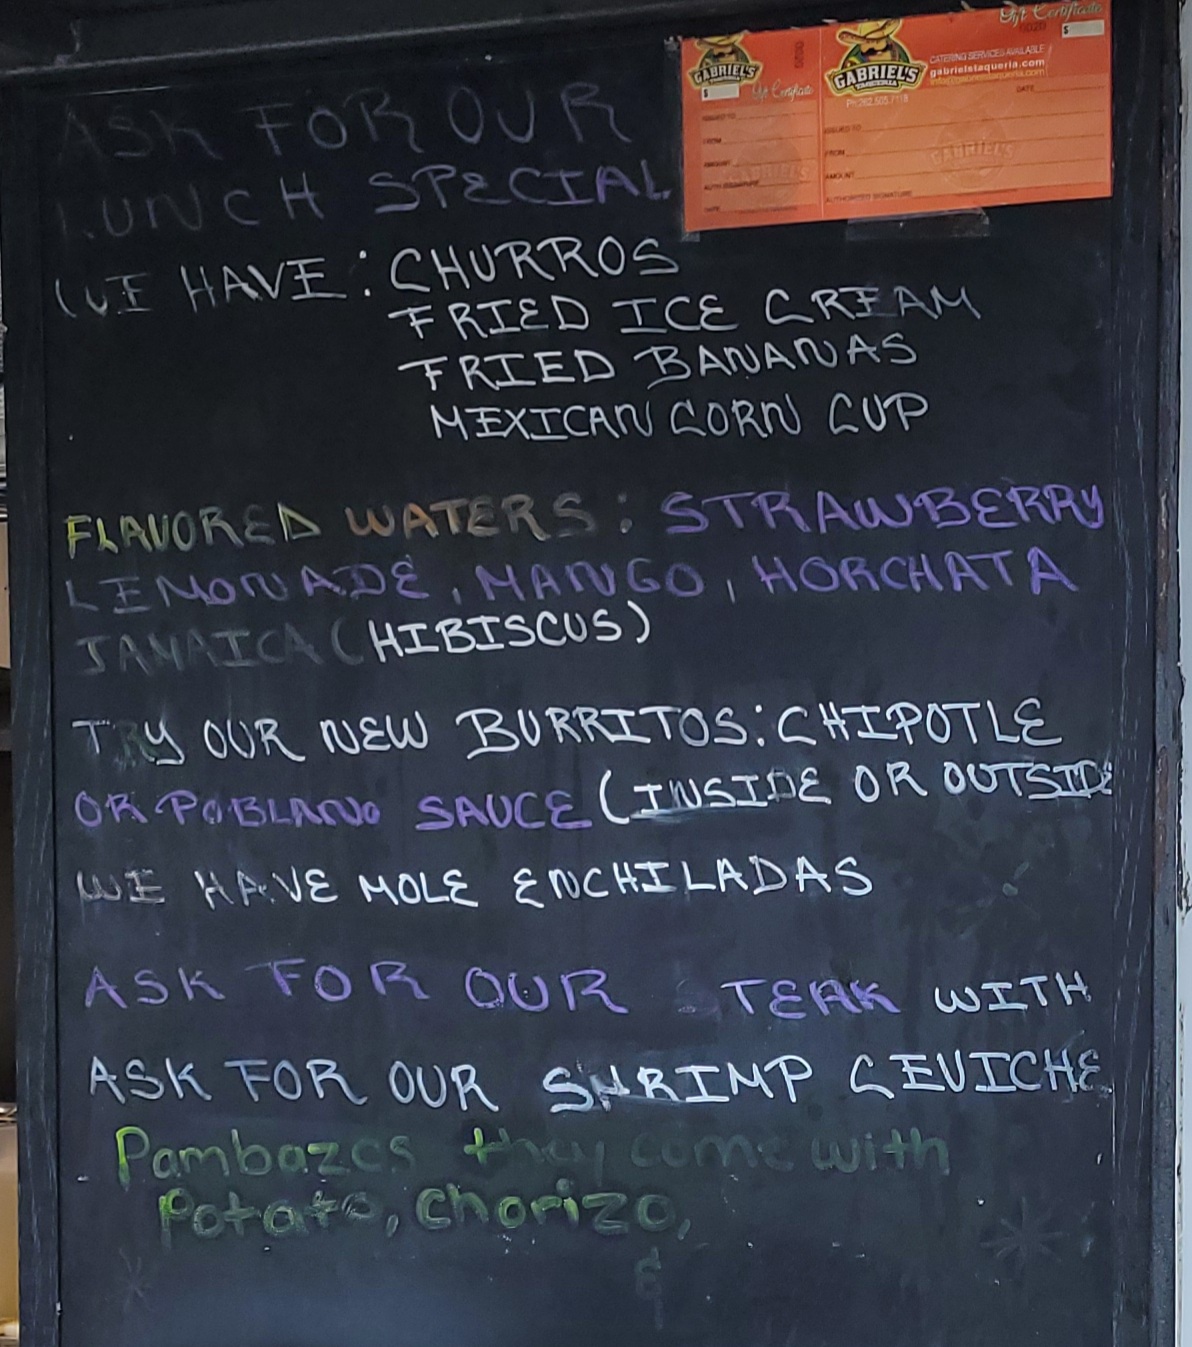 ASK FOR OUR
LUNCH SPECIAL
WE HAVE: CHURROS
FRIED ICE CREAM
FRIED BANANAS
MEXICAN CORN CUP
FLAVORED WATERS: STRAWBERRY
LEMONADE, MANGO, HORCHATA
JAMAICA (HIBISCUS)
TRY OUR NEW BURRITOS: CHIPOTLE
OR POBLANO SAUCE (INSIDE OR OUTSIDE
WE HAVE MOLE ENCHILADAS
ASK FOR OUR STEAK WITH
ASK FOR OUR SHRIMP CEVICHE
Pambazos they come with
Potato, chorizo,
&
GABRIEL'S
TAQUERIA
$
Gift Certificate
ISSUED TO
FROM
AMOUNT
AUTH SIGNATURE
DATE
GABRIEL'S
TAQUERIA
Gift Certificate
$
CATERING SERVICES AVAILABLE
gabrielstaqueria.com
info@gabrielstaqueria.com
Ph:262.505.7118
DATE
ISSUED TO
FROM
AMOUNT
AUTHORIZED SIGNATURE
GABRIEL'S